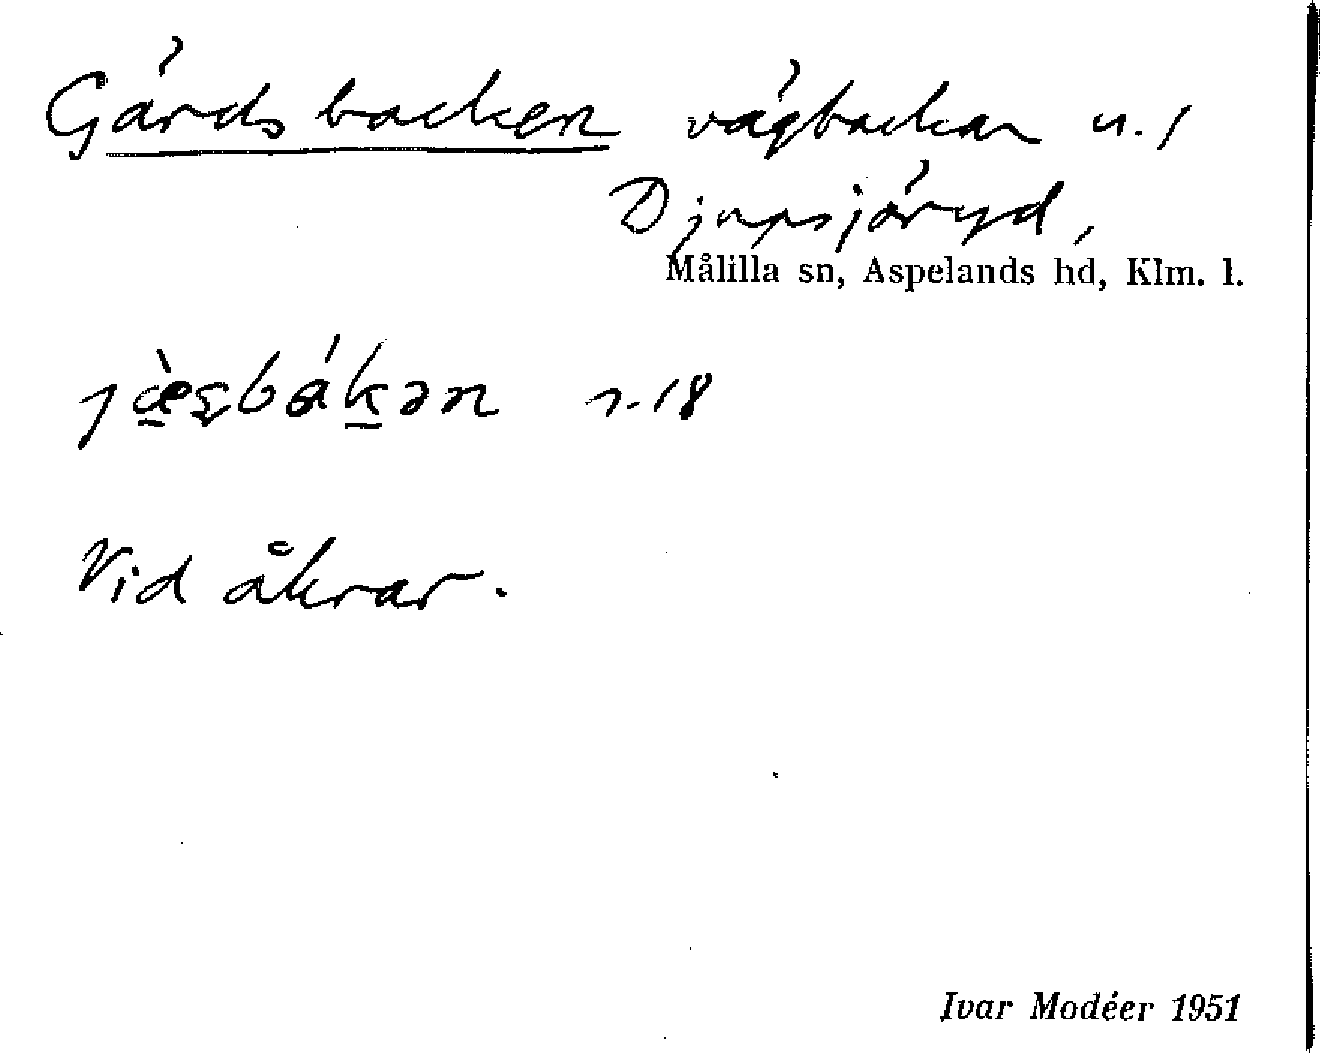 Gärdsbacken vägbackar u. 1
Djupsjöryd,
Målilla sn, Aspelands hd, Klm. l.
s. 18
Vid åkrar.
Ivar Modéer 1951